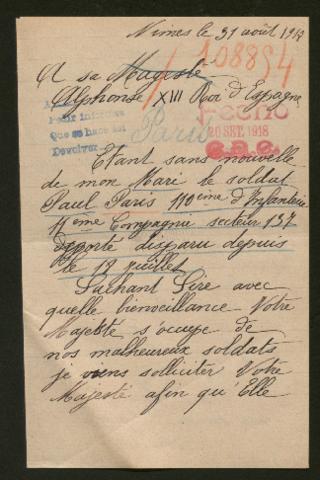 Nimes le 31 août 1918
108894
A sa Majesté
Alphonse XIII Roi d'Espagne
Pedir informe
Que se hace así
Devolver
Paris
HECHO
20 SET. 1918
Etant sans nouvelle
de mon Mari le soldat
Paul Paris 119ème d'Infanterie
11ème Compagnie secteur 137
disparu depuis
le 12 juillet
Sachant Sire avec
quelle bienveillance Votre
Majesté s'occupe de
nos malheureux soldats
je viens solliciter Votre
Majesté afin qu'Elle